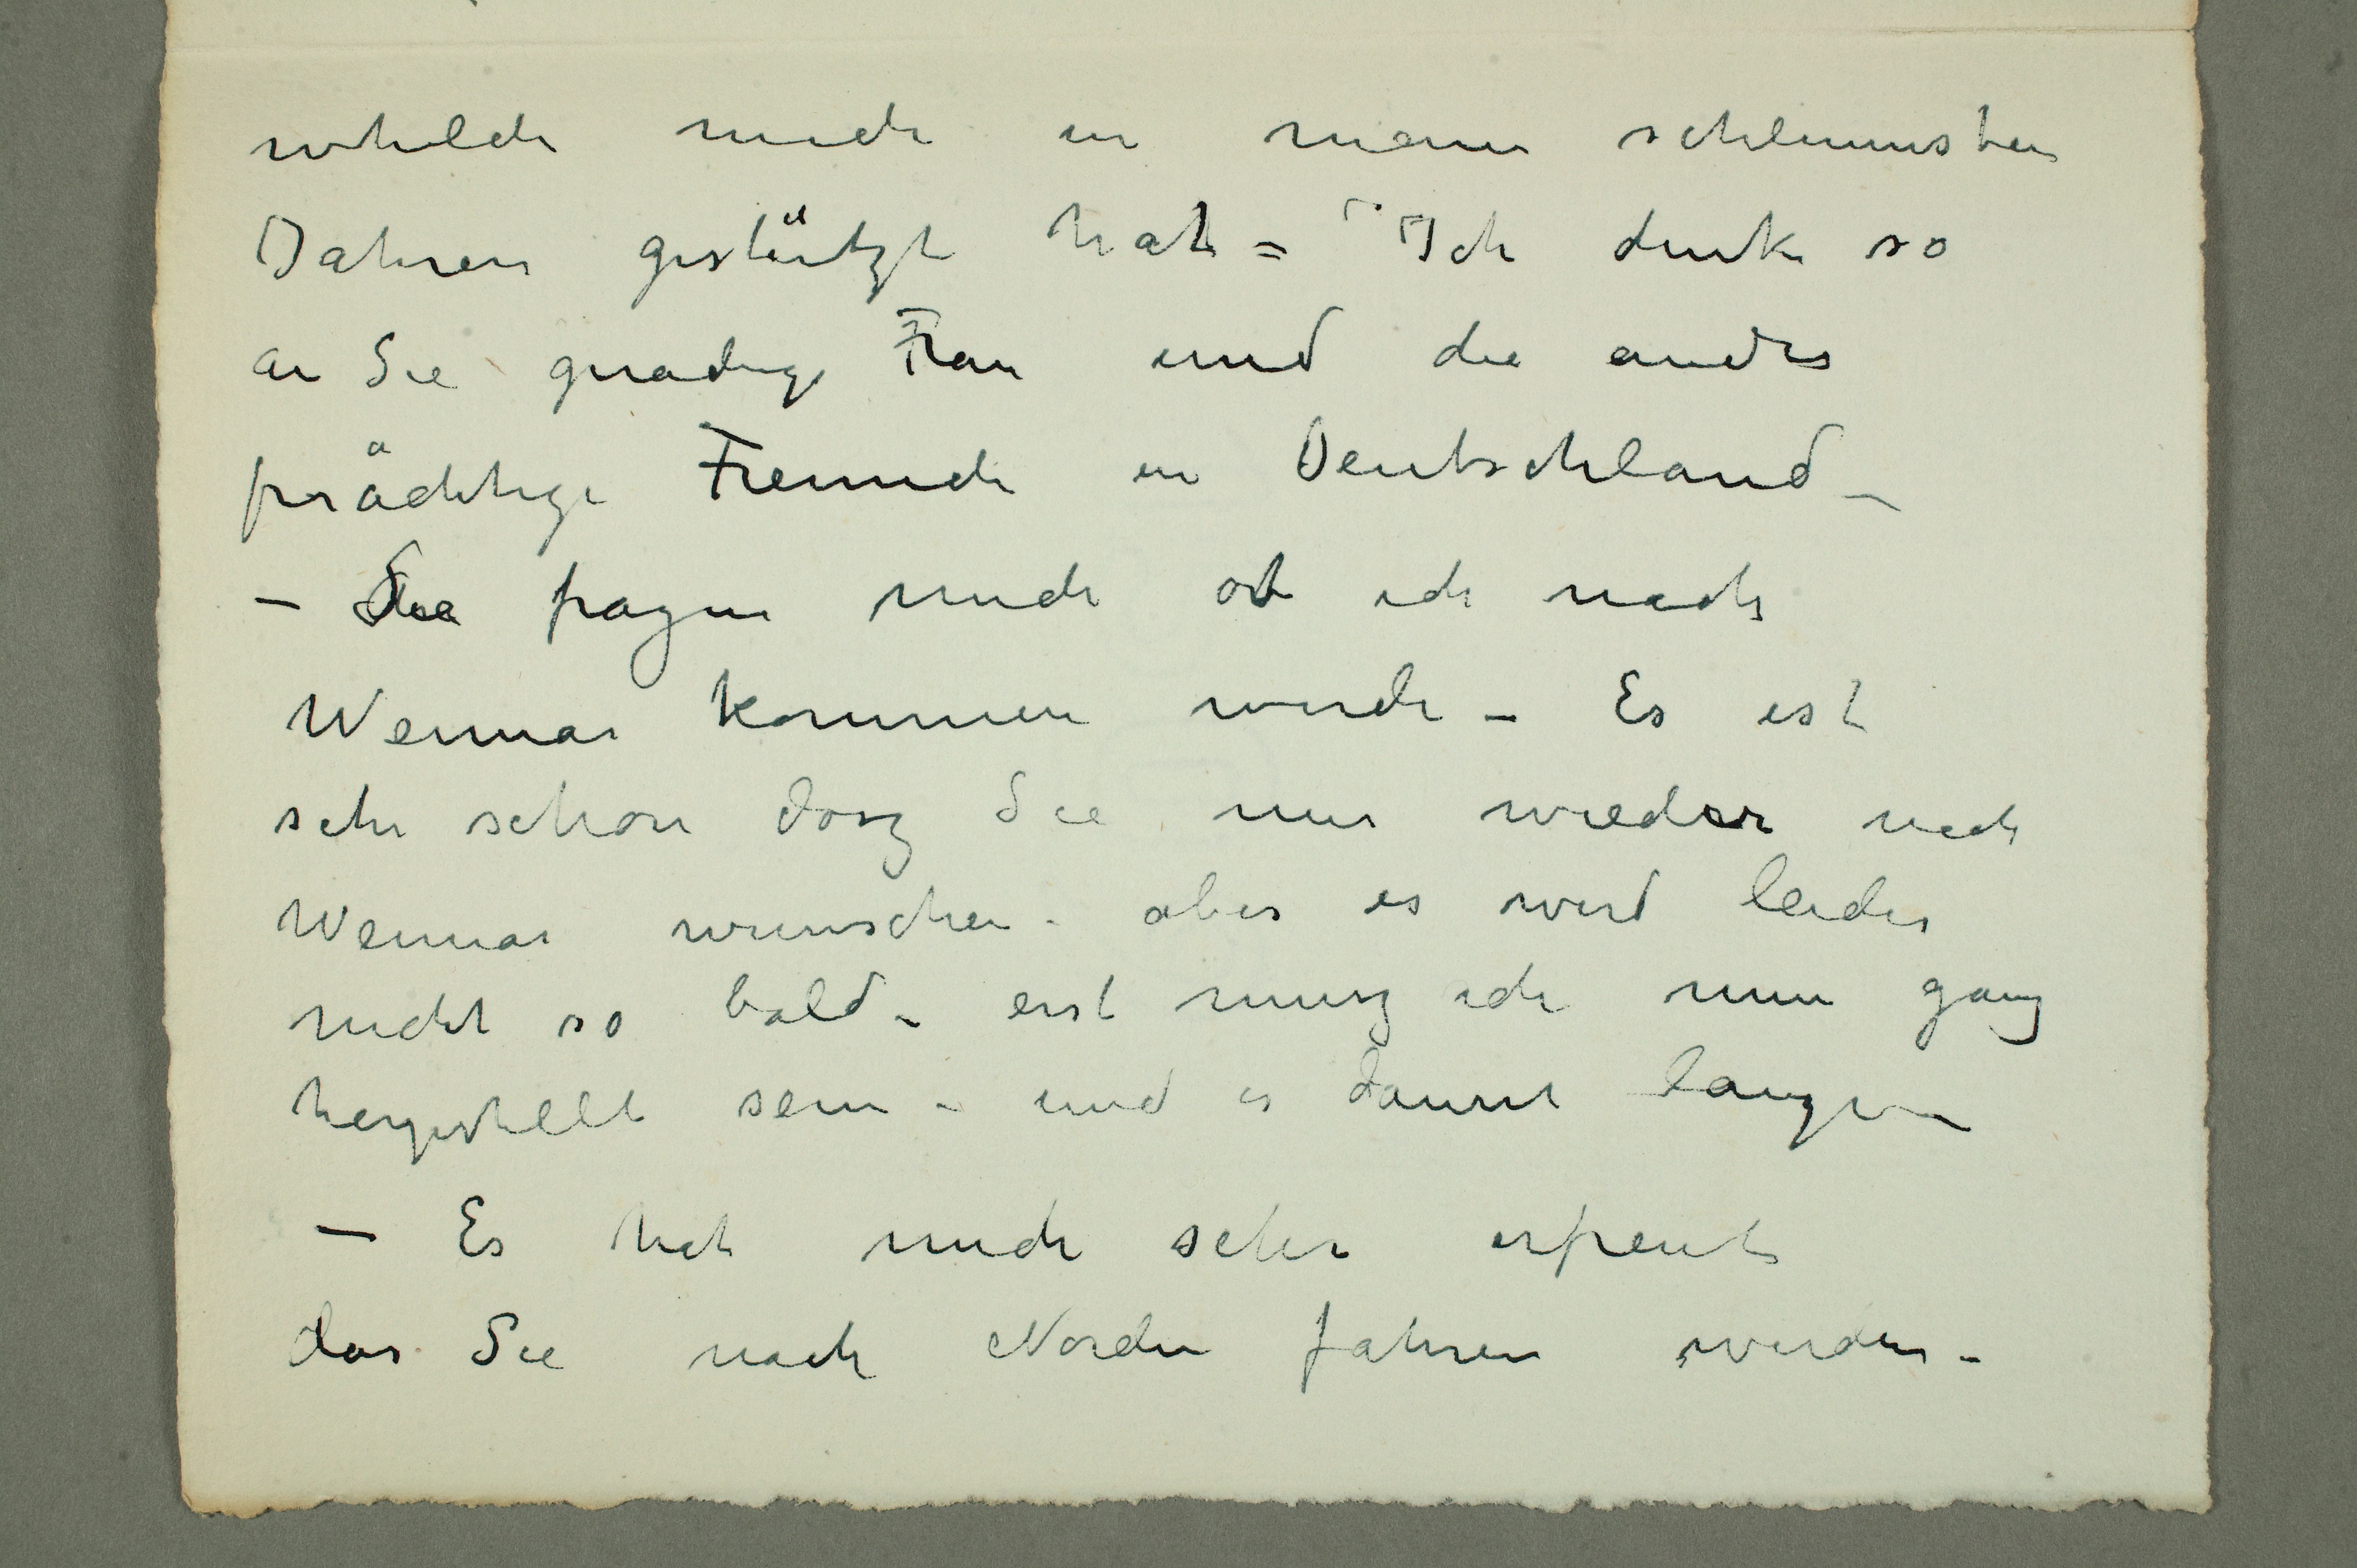 whelche mich in meinen schlimmsten
Jahren gestützt hat – Ich denke so
an Sie gnädige Frau und die andre
prächtige Freunde in Deutschland –
– Sie fragen mich ob ich nach
Weimar kommen werde – Es ist
sehr schön dasz Sie mir wieder nach
Weimar wunschen – aber es wird leider
nicht so bald – erst musz ich nun ganz
hergestellt sein – und es dauert lange –
– Es hat mich sehr erfreut
das Sie nach Norden fahren werden –